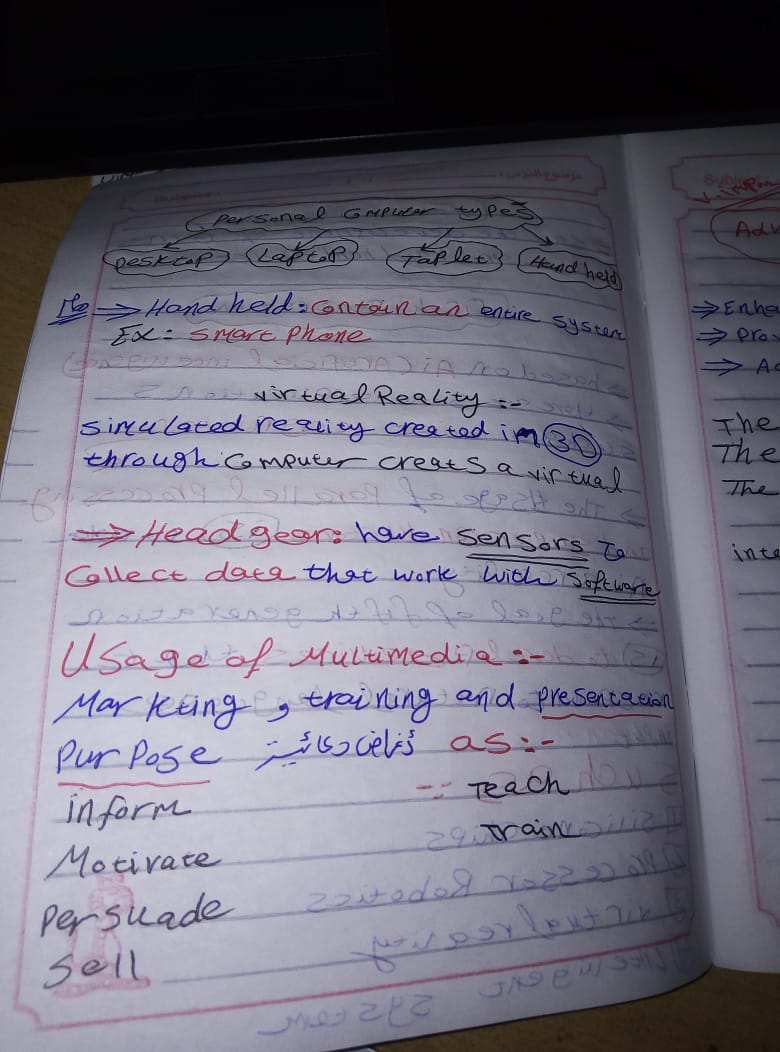 موضوع الدرس :
Personal Computer types
Desktop Laptop Taplet Hand held
⇒ Hand held: Contain an entire system
EX: Smart Phone
virtual Reality :-
Simulated reality created in 3D
through Computer creats a virtual
⇒ Head gear: have Sensors to
Collect data that work with Software
Usage of Multimedia :-
Markting, training and presentation
Purpose as :-
inform
Motivate
Persuade
Sell
Teach
train
⇒ Enha
⇒ Pro
⇒ A
The
The
The
inte